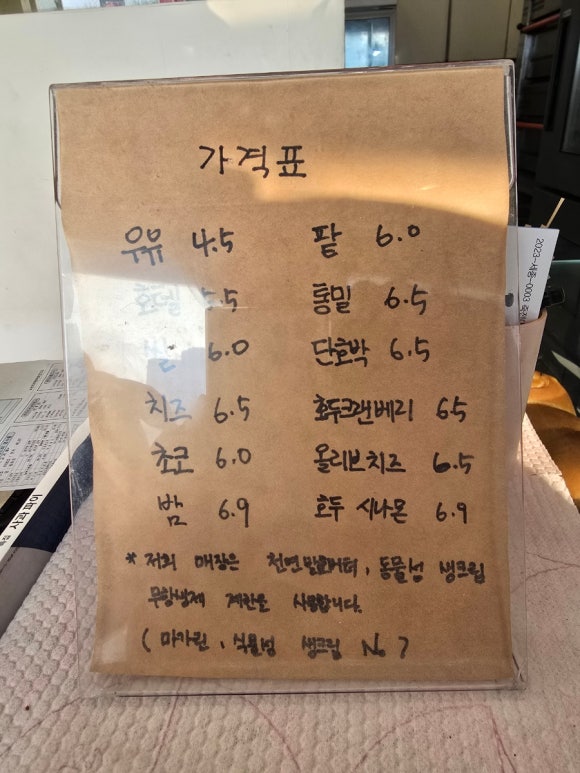 가격표
우유 4.5 팥 6.0
호밀 5.5 통밀 6.5
쌀 6.0 단호박 6.5
치즈 6.5 호두크랜베리 65
초코 6.0 올리브치즈 6.5
밤 6.9 호두 시나몬 6.9
* 저희 매장은 천연발효버터, 동물성 생크림
무항생제 계란을 사용합니다.
(마가린, 식물성 생크림 No)
2023-세종-0003
이파피사